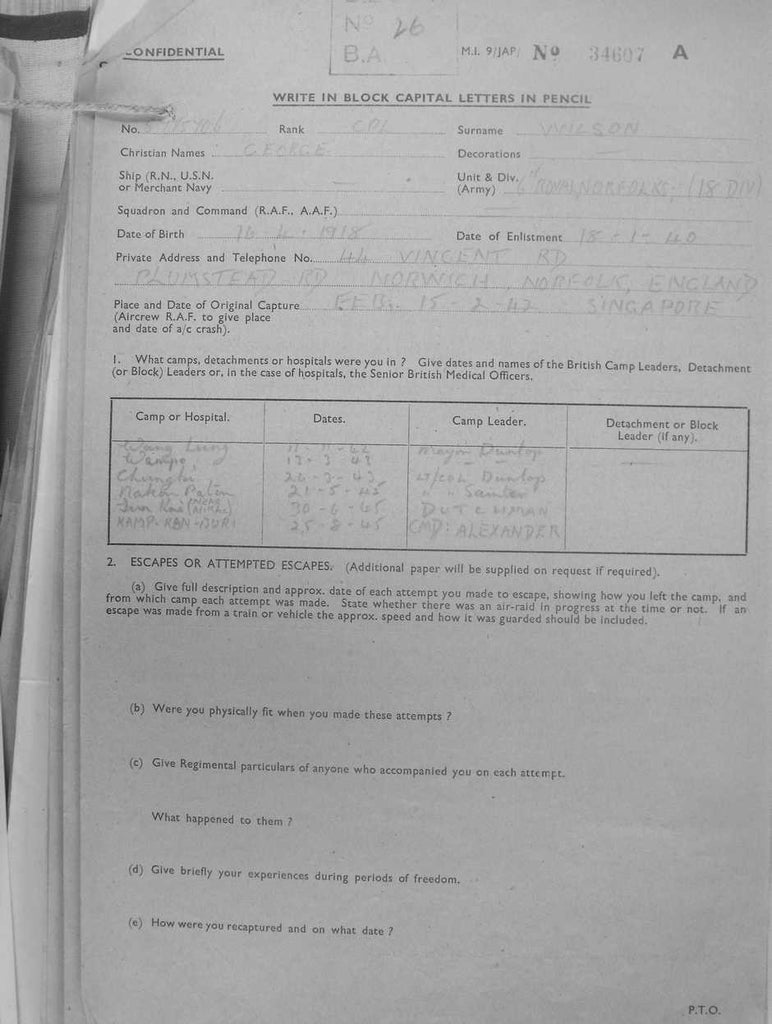 No 26
CONFIDENTIAL B.A. M.I. 9/JAP/ No 34607 A
WRITE IN BLOCK CAPITAL LETTERS IN PENCIL
No. Rank CPL Surname WILSON
Christian Names GEORGE Decorations
Ship (R.N., U.S.N. or Merchant Navy Unit & Div. (Army) 6th ROYAL NORFOLKS, (18 DIV)
Squadron and Command (R.A.F., A.A.F.)
Date of Birth 16-4-1918 Date of Enlistment 18-1-40
Private Address and Telephone No. 44 VINCENT RD
PLUMSTEAD RD NORWICH, NORFOLK, ENGLAND
Place and Date of Original Capture FEB. 15-2-42 SINGAPORE
(Aircrew R.A.F. to give place
and date of a/c crash).
1. What camps, detachments or hospitals were you in ? Give dates and names of the British Camp Leaders, Detachment
(or Block) Leaders or, in the case of hospitals, the Senior British Medical Officers.
Camp or Hospital. Dates. Camp Leader. Detachment or Block
Leader (if any).
Wang Lung Major Dunlop
Wampo,
Chungki LT/COL Dunlop
Nakon Paton 21-5-45 " "
30-6-45 DUTCHMAN
KAMP-KAN-BURI 25-8-45 CMD: ALEXANDER
2. ESCAPES OR ATTEMPTED ESCAPES. (Additional paper will be supplied on request if required).
(a) Give full description and approx. date of each attempt you made to escape, showing how you left the camp, and
from which camp each attempt was made. State whether there was an air-raid in progress at the time or not. If an
escape was made from a train or vehicle the approx. speed and how it was guarded should be included.
(b) Were you physically fit when you made these attempts ?
(c) Give Regimental particulars of anyone who accompanied you on each attempt.
What happened to them ?
(d) Give briefly your experiences during periods of freedom.
(e) How were you recaptured and on what date ?
P.T.O.